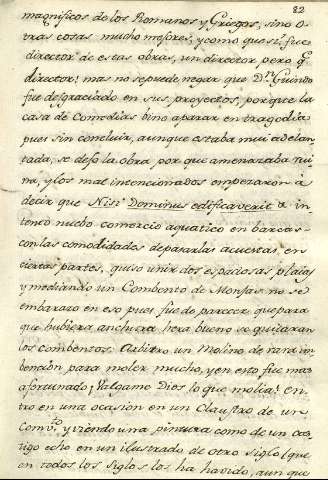 82
magnificos de los Romanos y Griegos, sino o
tras cosas mucho mejores, y como que si, fue
director de estas obras, un director pero q.e
director! mas no se puede negar que D.n Guindo
fue desgraciado en sus proyectos, porque la
casa de Comedias vino aparar en tragedia
pues sin concluir, aunque estaba mui adelan-
tada, se dejo la obra por que amenazaba rui
na, y los mal intencionados empezaron à
decir que Nisi Dominus edificaverit &
intentó mucho comercio aquatico en barcas
con las comodidades de pasarlas acuestas en
ciertas partes, quiso unir dos espaciosas plazas
y mediando un Combento de Monjas no se
embarazo en eso pues fue de parecer que para
que hubiera anchura hera bueno se quitaran
los combentos. Arbitro un Molino de rara in
bención para moler mucho, y en esto fue mas
afortunado; Valgame Dios lo que molia! en-
tro en una ocasión en un Claustro de un
Comv.to y viendo una pintura como de un cas
tigo echo en un ilustrado de otro siglo (que
en todos los siglos los ha havido, aun que